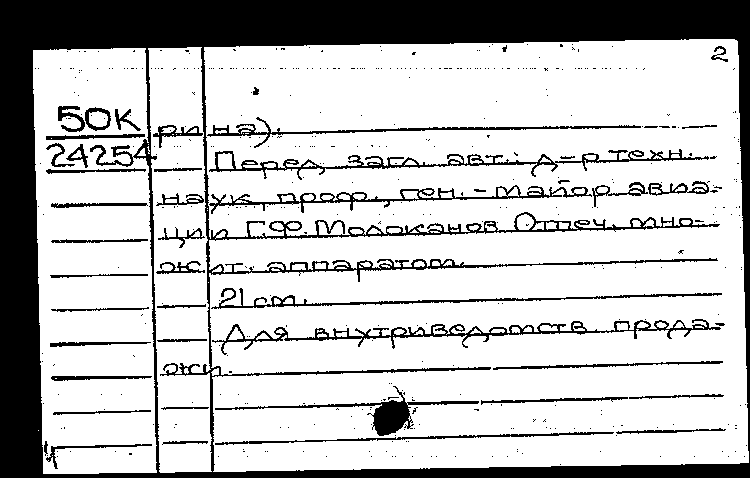 2
50К рина).
24254 Перед загл. авт.: д-р техн.
наук, проф., ген.-майор авиа-
ции Г.Ф. Молоканов Отпеч. мно-
жит. аппаратом.
21 см.
Для внутриведомств. прода-
жи.